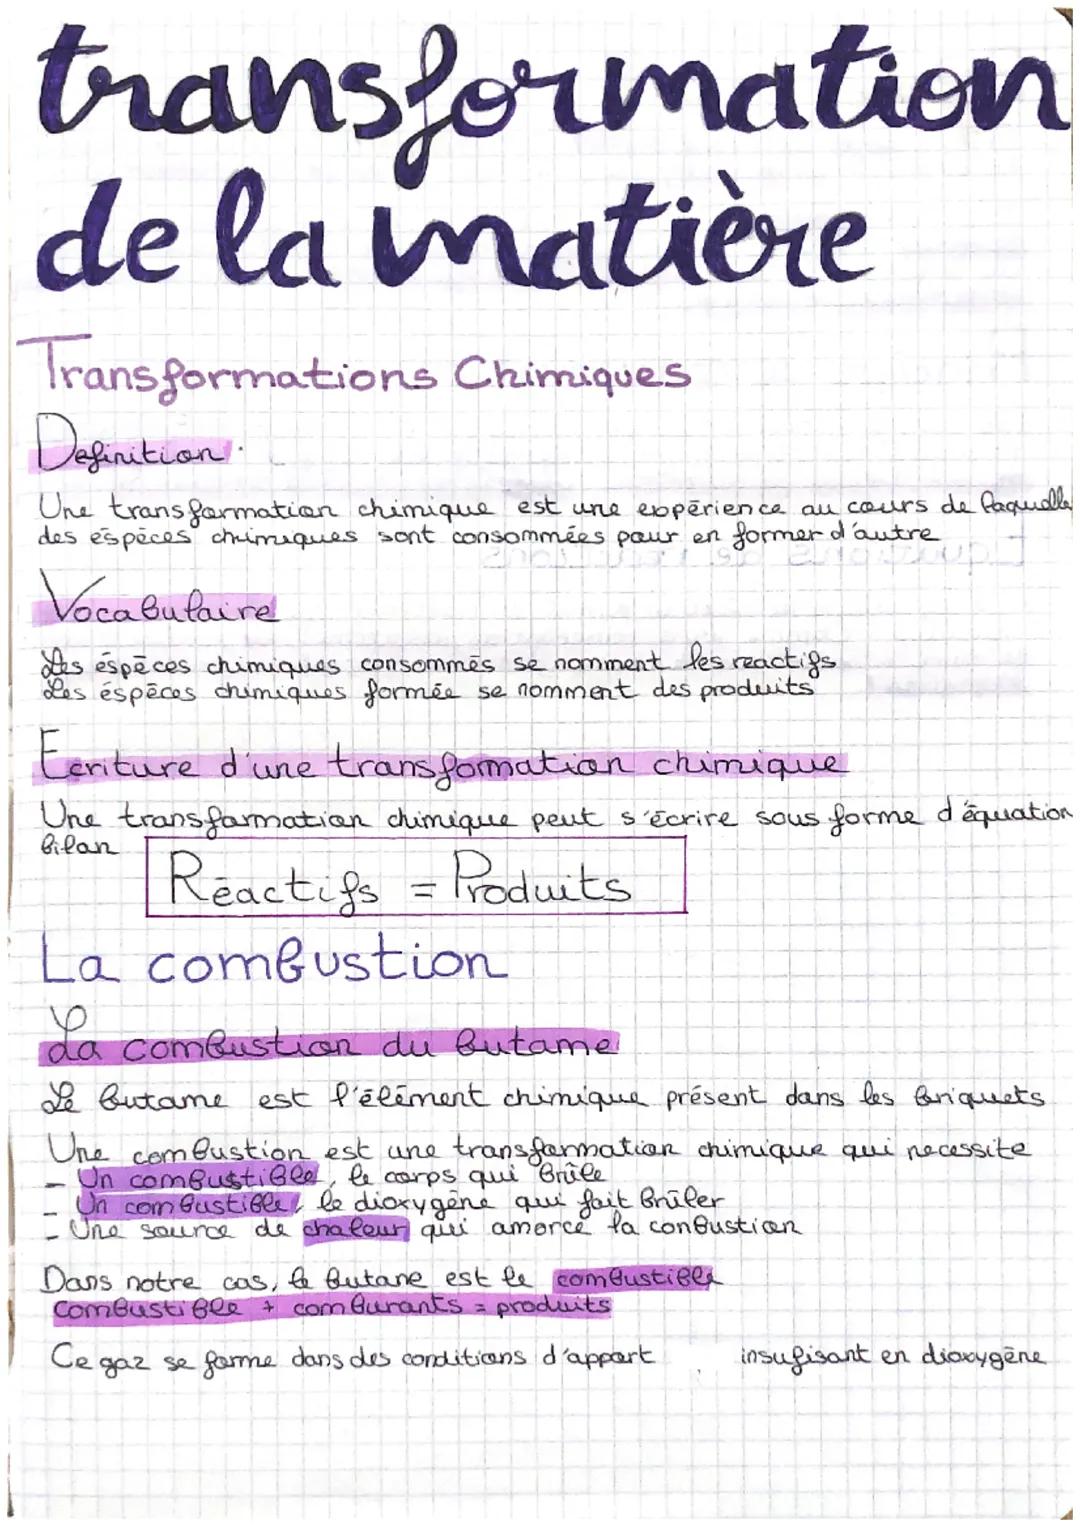 transformation
de la matière
Transformations Chimiques
Definition.
Une transformation chimique est une expérience au cours de laquelle
des éspèces chimiques sont consommées pour en former d'autre
Vocabulaire
Les éspèces chimiques consommés se nomment les reactifs
Les éspèces chimiques formée se nomment des produits
Ecriture d'une transformation chimique
Une transformation chimique peut s'écrire sous forme d'équation
bilan
Réactifs = Produits
La combustion
La combustion du butame
Le butame est l'élément chimique présent dans les briquets
Une combustion est une transformation chimique qui necessite
- Un combustible, le corps qui brûle
- Un combustible, le dioxygène qui fait brûler
- Une source de chaleur qui amorce la conbustion
Dans notre cas, le butane est le combustible
combustible + comburants = produits
Ce gaz se forme dans des conditions d'appart insufisant en dioxygène